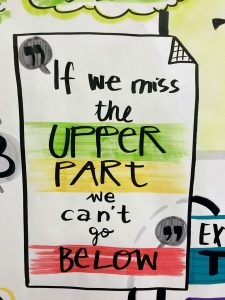 "
If we miss
the
UPPER
PART
we
can't
go
BELOW
"
EX
T